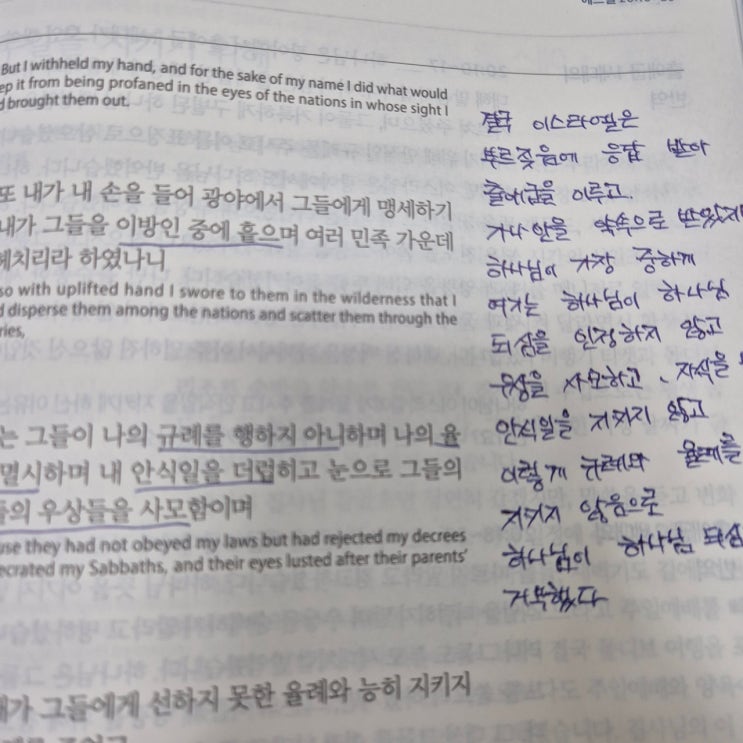 But I withheld my hand, and for the sake of my name I did what would
ep it from being profaned in the eyes of the nations in whose sight I
d brought them out.
또 내가 내 손을 들어 광야에서 그들에게 맹세하기
내가 그들을 이방인 중에 흩으며 여러 민족 가운데
헤치리라 하였나니
so with uplifted hand I swore to them in the wilderness that I
d disperse them among the nations and scatter them through the
ries,
는 그들이 나의 규례를 행하지 아니하며 나의 율
멸시하며 내 안식일을 더럽히고 눈으로 그들의
들의 우상들을 사모함이며
use they had not obeyed my laws but had rejected my decrees
ecrated my Sabbaths, and their eyes lusted after their parents'
내가 그들에게 선하지 못한 율례와 능히 지키지
이스라엘은
부르짖음에 응답 받아
출애굽을 이루고
가나안을 약속으로 받았지만
하나님이 가장 중하게
여기는 하나님이 하나님
되심을 인정하지 않고
우상을 사모하고 자식을
안식일을 지키지 않고
이렇게 규례와 율례를
지키지 않음으로
하나님이 하나님 되심
거부했다